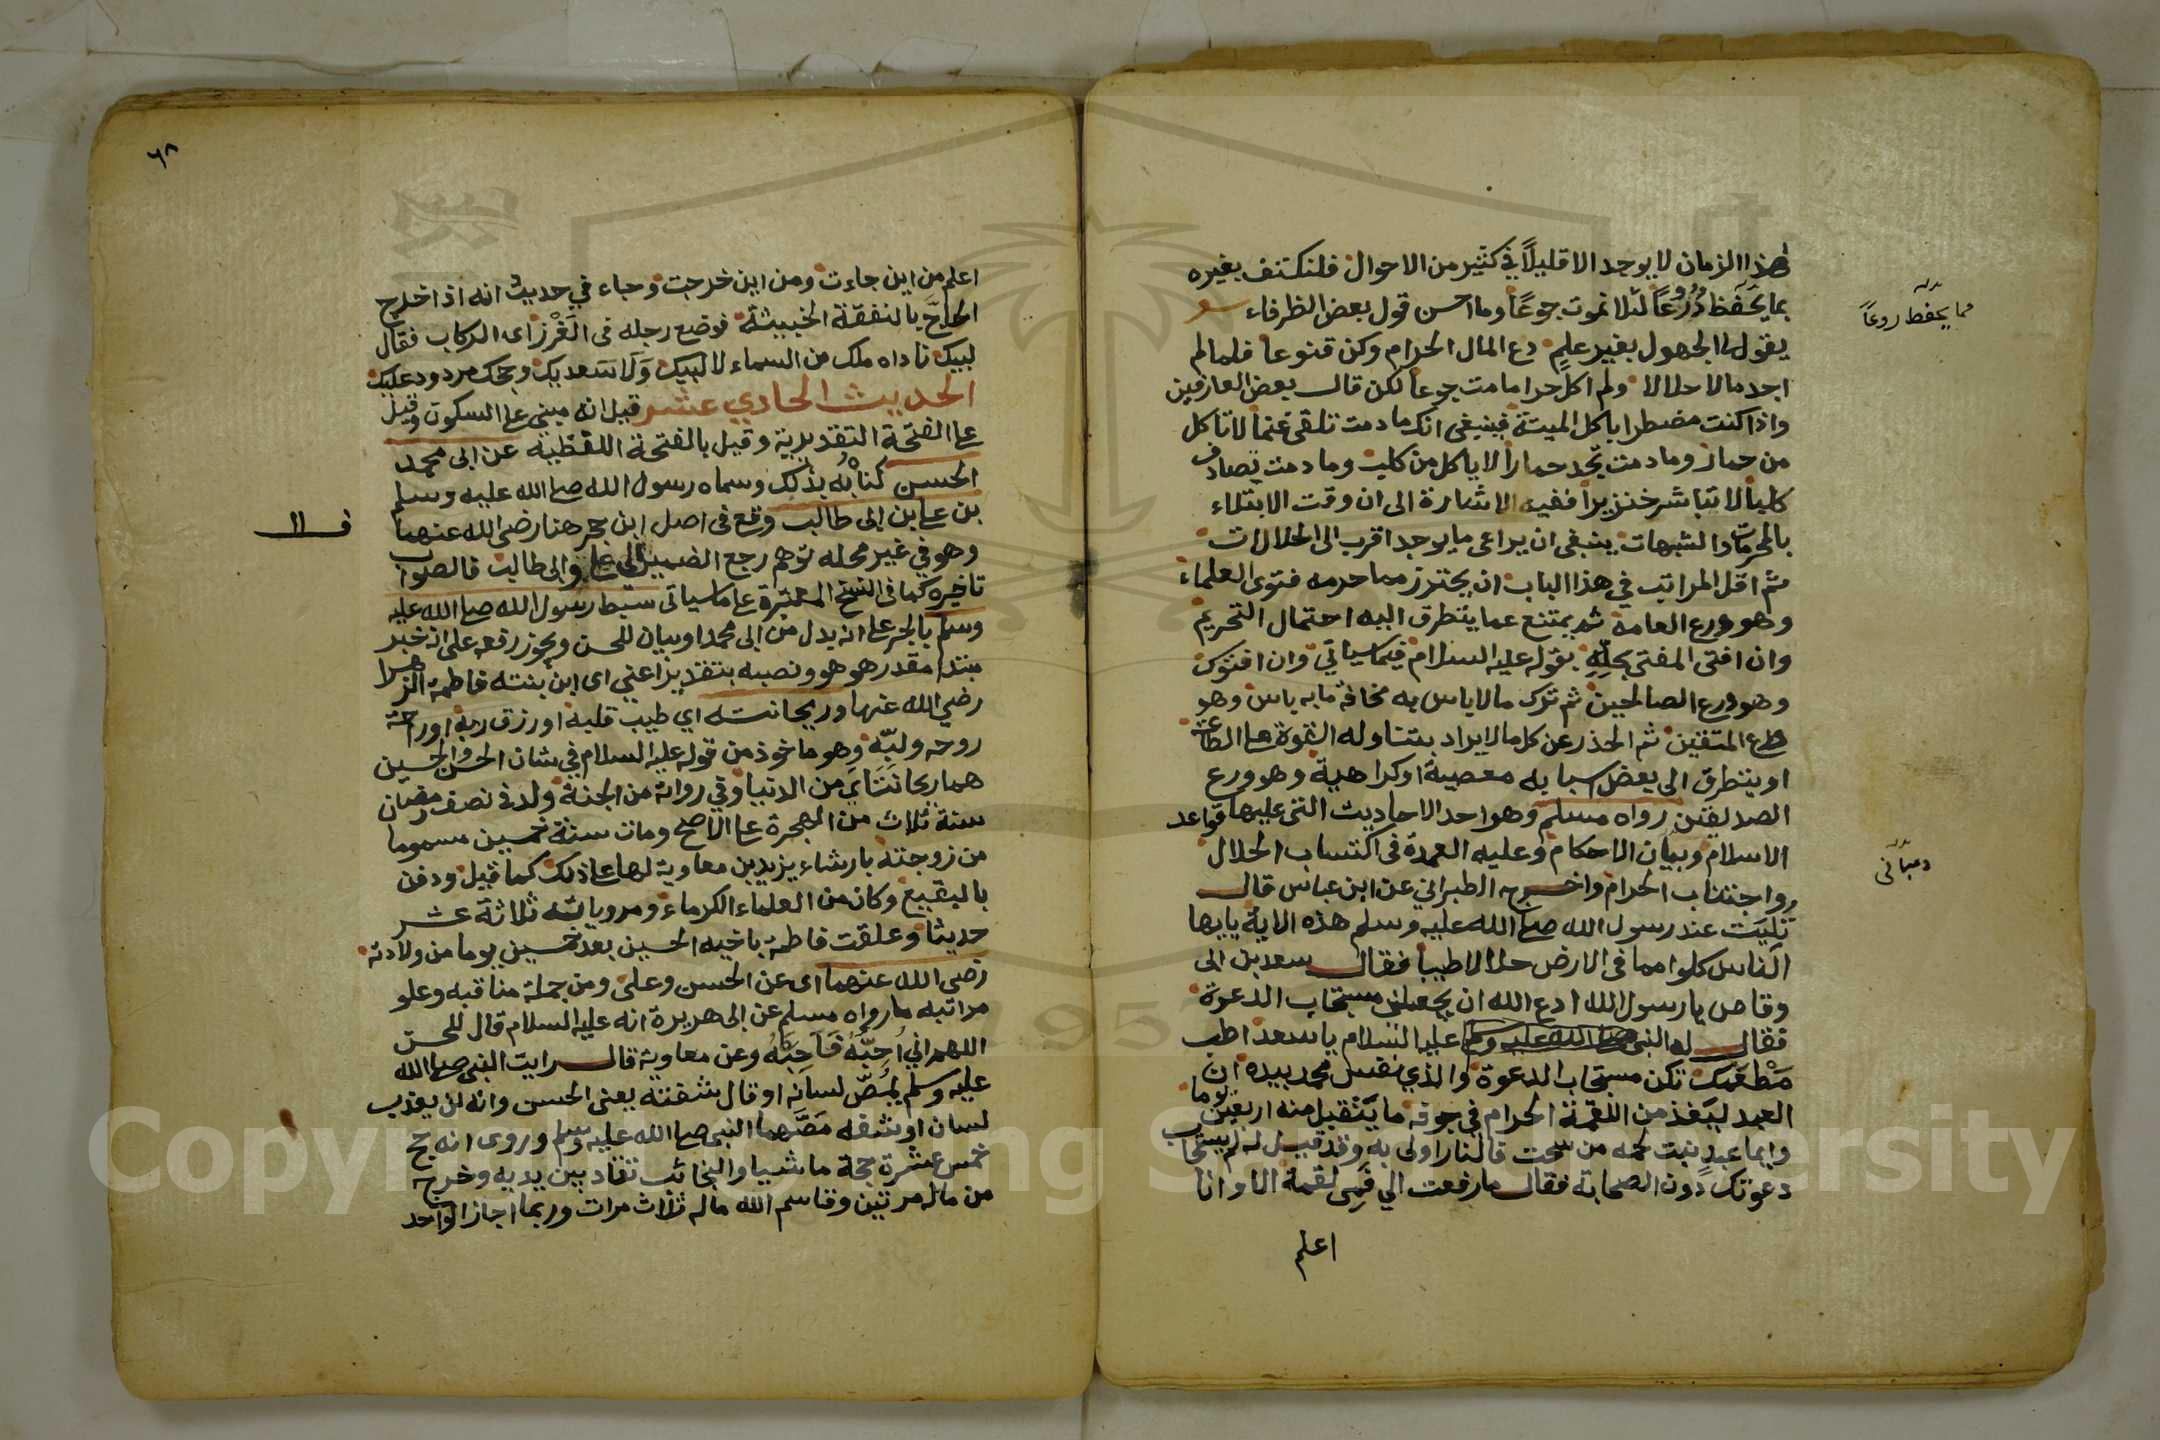 هذا الزمان لا يوجد الا قليلاً في كثير من الاحوال فلنكتف بغيره
بما يحفظ رُوعاً لئلا نموت جوعاً وما احسن قول بعض الظرفاء
يقول لي الجهول بغير علمٍ دع المال الحرام وكن قنوعا فلما لم
اجد مالا حلالا ولم اكل حراما مت جوعا لكن قال بعض العارفين
واذا كنت مضطرا باكل الميتة فينبغي انك ما دمت تلقى غنما لا تاكل
من حمار وما دمت تجد حماراً لا ياكل من كلب وما دمت تصادف
كلباً لا تباشر خنزيراً ففيه الاشارة الى ان وقت الابتلاء
بالمحرمات والشبهات ينبغي ان يراعى ما يوجد اقرب الى الحلالات
ثم اقل المراتب في هذا الباب ان يحترز مما حرمه فتوى العلماء
وهو ورع العامة ثم يمتنع عما يتطرق اليه احتمال التحريم
وان افتى المفتي بحلّه بقوله عليه السلام فيما سياتي وان افتوك
وهو ورع الصالحين ثم ترك ما لا باس به مخافة ما به باس وهو
ورع المتقين ثم الحذر عن كل ما لا يراد بتناوله القوة على الطاعة
او يتطرق الى بعض اسبابه معصية او كراهية وهو ورع
الصديقين رواه مسلم وهو احد الاحاديث التي عليها قواعد
الاسلام وبيان الاحكام وعليه العمدة في اكتساب الحلال
واجتناب الحرام واخرج الطبراني عن ابن عباس قال
تُليَت عند رسول الله صلى الله عليه وسلم هذه الاية يا يها
الناس كلوا مما في الارض حلالا طيباً فقال سعد بن ابي
وقاص يا رسول الله ادع الله ان يجعلني مستجاب الدعوة
فقال له النبي صلى الله عليه وسلم عليه السلام يا سعد اطب
مَطْعَمَك تكن مستجاب الدعوة والذي نفس محمد بيده ان
العبد ليقذف من اللقمة الحرام في جوفه ما يتقبل منه اربعين يوما
وايما عبدٍ نبت لحمه من سحت فالنار اولى به وقد قيل له لم يستجاب
دعوتك دون الصحابة فقال ما رفعت الي فمي لقمة الا وانا
اعلم
مما يحفظ روعاً
ومبانى
٦٨
اعلم من اين جاءت ومن اين خرجت وجاء في حديث انه اذا خرج
الحاجّ بالنفقة الخبيثة فوضع رجله في الغَرْز اى الركاب فقال
لبيك ناداه ملك من السماء لا لبيك ولا سعديك وحجك مردود عليك
الحديث الحادي عشر قيل انه مبني على السكون وقيل
على الفتحة التقديرية وقيل بالفتحة اللفظية عن ابي محمد
الحسن كناه بذلك وسماه رسول الله صلى الله عليه وسلم
بن علي بن ابي طالب وقع في اصل ابن حجر هنا رضي الله عنهما
وهو في غير محله توهم رجع الضمير الى علي والى طالب فالصواب
تاخيره كما في النسخ المعتبرة على ما سياتى سبط رسول الله صلى الله عليه
وسلم بالجر على انه بدل من ابي محمد او بيان للحسن ويجوز رفعه على انه خبر
مبتدا مقدر هو هو ونصبه بتقدير اعني اى ابن بنته فاطمة الزهرا
رضي الله عنها وريحانته اي طيب قلبه او رزق ربه او راحة
روحه ولبّه وهو ماخوذ من قوله عليه السلام في شان الحسن والحسين
هما ريحانتاي من الدنيا وفي رواية من الجنة ولد في نصف رمضان
سنة ثلاث من الهجرة على الاصح ومات سنة خمسين مسموما
من زوجته بارشاء يزيد بن معاوية لها على ذلك كما قيل ودفن
بالبقيع وكان من العلماء الكرماء ومروياته ثلاثة عشر
حديثا وعلقت فاطمة باخيه الحسين بعد خمسين يوما من ولادته
رضي الله عنهما اى عن الحسن وعلى ومن جملة مناقبه وعلو
مراتبه ما رواه مسلم عن ابي هريرة انه عليه السلام قال للحسن
اللهم اني اُحِبُّهُ فَاَحِبَّهُ وعن معاوية قال رايت النبي صلى الله
عليه وسلم يمُصّ لسانه او قال شفته يعنى الحسن وانه لن يعذب
لسان او شفه مَصَّهما النبي صلى الله عليه وسلم وروى انه حج
خمس عشرة حجة ماشيا والنجائب تقاد بين يديه وخرج
من ماله مرتين وقاسم الله ماله ثلاث مرات وربما اجاز الواحد